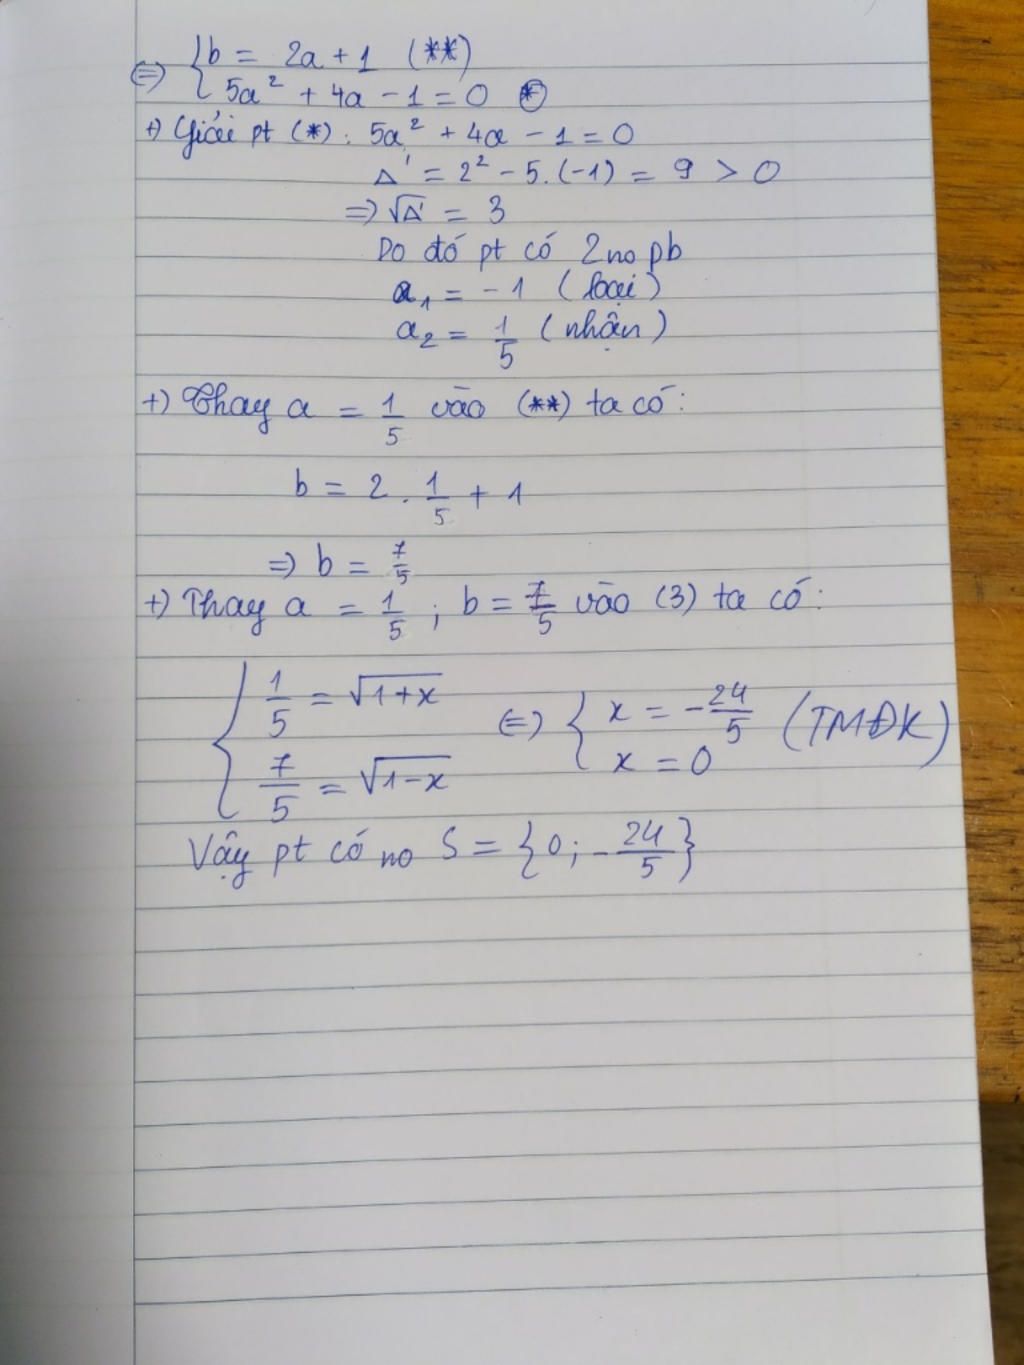 ⇔ { b = 2a + 1 (**)
5a² + 4a - 1 = 0 (*)
+) Giải pt (*) : 5a² + 4a - 1 = 0
Δ' = 2² - 5.(-1) = 9 > 0
⇒ √Δ' = 3
Do đó pt có 2 no pb
a₁ = - 1 (loại)
a₂ = 1/5 (nhận)
+) Thay a = 1/5 vào (**) ta có :
b = 2 . 1/5 + 1
⇒ b = 7/5
+) Thay a = 1/5 ; b = 7/5 vào (3) ta có :
{ 1/5 = √1+x ⇔ { x = -24/5 (TMĐK)
7/5 = √1-x x = 0
Vậy pt có no S = {0 ; -24/5}